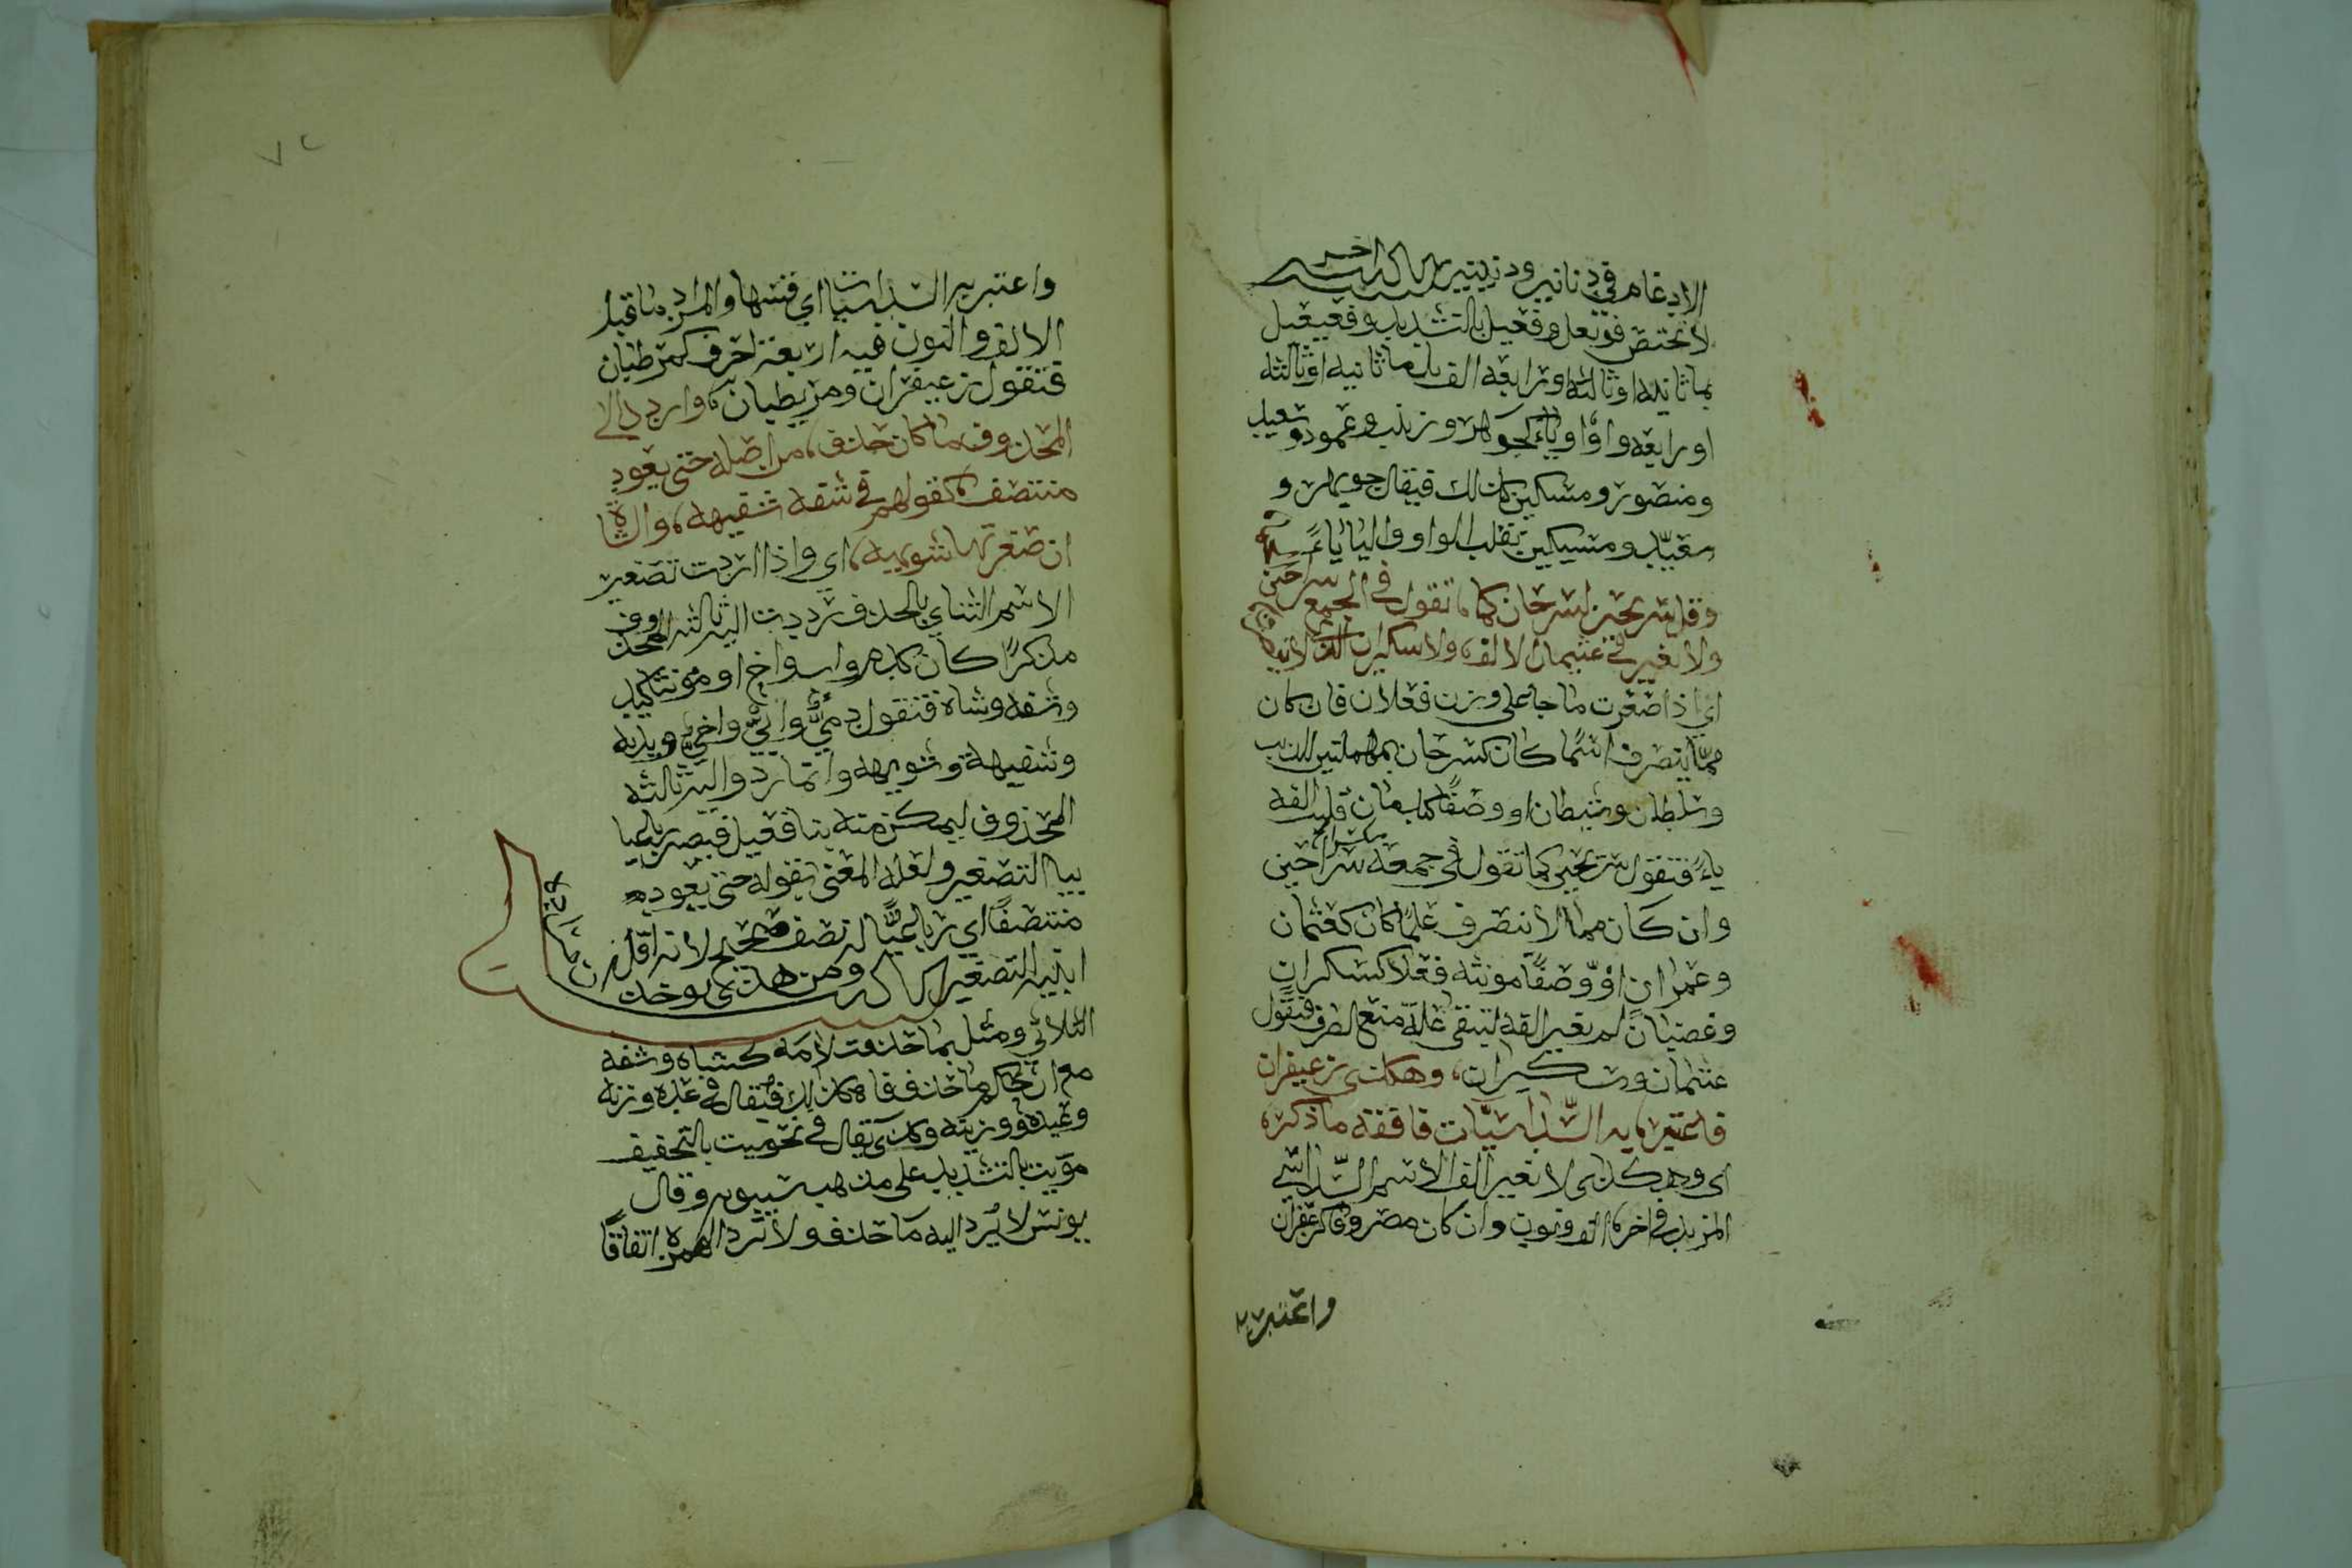 الادغام في دنانير ودنينير تنبيه اخر
لا تختص فويعل وفعيل بالتشديد وفعيعيل
بما ثانيه او ثالثه او رابعه الف بل ما ثانيه او ثالثه
او رابعه واوًا او ياءً كجوهر وزينب وعمود وسعيد
ومنصور ومسكين كذلك فيقال جويهر و
معيّد ومسيكين بقلب الواو والياء ياءً
وقل سريحين لسرحان كما تقول في الجمع سراحين
ولا تغير في عثيمان الالف ولا سكيران الذي لا ينصرف
اي اذا صغرت ما جا على وزن فعلان فان كان
ممّا ينصرف اسمًا كان كسرحان بمهملتين للذيب
وسلطان وشيطان او وصفًا كندمان قلبت الفه
ياءً فتقول سريحين كما تقول في جمعه سراحين
وان كان مما لا ينصرف علمًا كان كعثمان
وعمران او وصفًا مونثه فعلا كسكران
وغضبان لم تغير الفه لتبقى علة منع الصرف فتقول
عثيمان وسكيران، وهكذى زعيفران
فاعتبر، به السّداسيّات فافقه ما ذكره
اي وهكذى لا تغير الف الاسم السّداسي
المزيد في اخره الف ونون وان كان مصروفًا كزعفران
واعتبر به
٧٢
واعتبر به السداسيات اي قسها والمراد ما قبل
الالف والنون فيه اربعة احرف كمرطبان
فتقول زعيفران ومريطبان، واردد الى
المحذوف ما كان حذف، من اصله حتى يعود
منتصف، كقولهم في شفه شفيهه، والشاة
ان صغرتها شويهه، اي واذا اردت تصغير
الاسم الثناي بالحذف رددت اليه ثالثه المحذوف
مذكرًا كان كدم واب واخ او مونثا كيد
وشفه وشاه فتقول دميّ وابيّ واخيّ ويديه
وشفيهة وشويهه وانما ردوا اليه ثالثه
المحذوف ليمكن منه بنا فعيل فيصير رباعيا
بيا التصغير ولعله المعنى بقوله حتى يعود
منتصفًا اي رباعيًّا له نصف صحيح لانه اقل
ابنيه التصغير تنبيه ومن هذى يوخذ ان ما زيد
الثلاثي ومثل بما حذفت لامه كشاه وشفه
مع ان حكم ما حذف فاه كذلك فيقال في عده وزنه
وعيده ووزينه وكذى يقال في نحو ميت بالتخفيف
مويت بالتشديد على مذهب سيبويه وقال
يونس لا يُرد اليه ما حذف ولا ترد الهمزة اتفاقًا